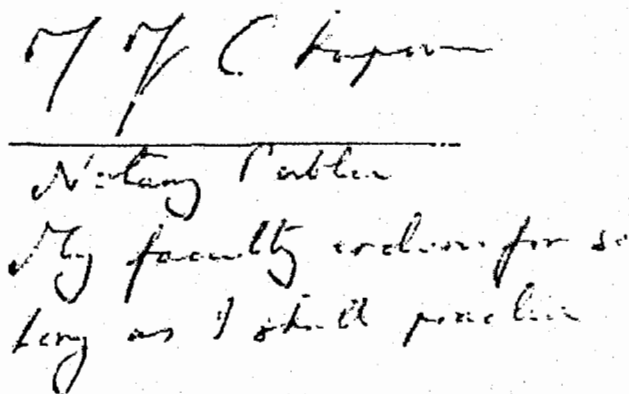 Notary Public
My faculty endures for so
long as I shall practice